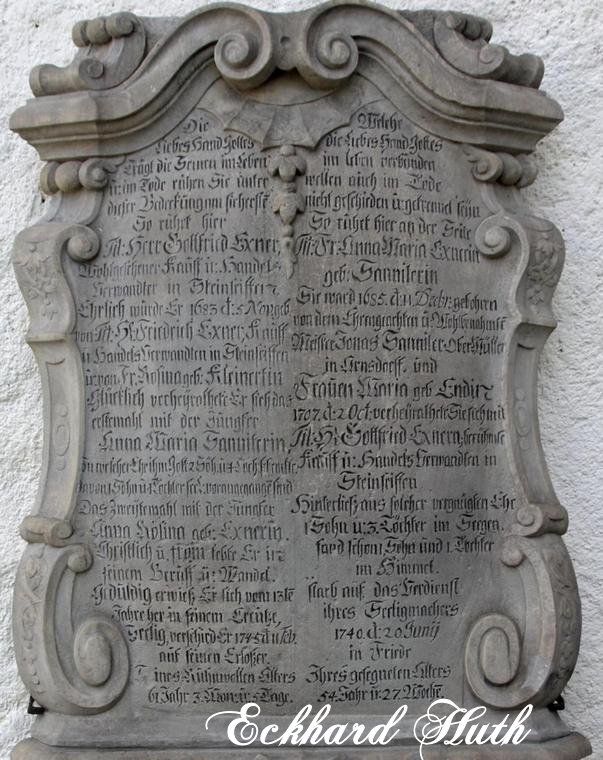 Die
Liebes Hand Gottes
Trägt die Seinen im Leben
u: im Tode ruhen Sie unter
dieser Bedeckung
So ruhet hier
Tit: Herr Gottfried Exner,
Wohlgesehener Kauff u: Handels
Verwandter in Steinseiffen
Ehrlich wurde Er 1683 d: 5 Nov: geb:
von Tit: Hr: Friedrich Exner, Kauff
u: Handels Verwandten in Steinseiffen
u: von Fr: Rosina geb: Kleinertin
Glücklich verheyrathete Er sich das
erstemahl mit der Jungfer
Anna Maria Sannilerin,
Das zweitemahl mit der Jungfer
Anna Rosina geb: Exnerin.
Christlich u: from lebte Er in
seinem Beruff u: Wandel.
Geduldig erwieß Er sich
Jahre her in seinem Creutze,
Seelig, verschied Er 1745 d: 11 Feb:
auf seinen Erlößer.
Seines Ruhmvollen Alters
61 Jahr 3. Mon: u: 5 Tage.
Welche
die Liebes Hand Gottes
im leben verbunden
wollen auch im Tode
nicht geschieden u: getrennet seÿn
So ruhet hier an der Seite
Tit: Fr: Anna Maria Exnerin
geb: Sannilerin
Sie ward 1685. d: 11 Decbr: gebohren
von dem Ehrengeachten u: Wohlbenahmten
Meister Jonas Sanniler Ober Müller
in Arnsdorff, und
Frauen Maria geb
1707. d: 2 Oct: verheyrathete Sie sich mit
Tit: Hr: Gottfried Exnern, berühmten
Kauff u: Handels Verwandten in
Steinseiffen
Hinterließ aus solcher vergnügten Ehe
1 Sohn u: 3. Töchter im Seegen.
fand schon 1 Sohn und 1. Tochter
im Himmel.
starb auf das Verdienst
ihres Seeligmachers
1740. d: 20 Junij
in Friede
Ihres gesegneten Alters
54. Jahr u: 27. Woch:
Eckhard Huth